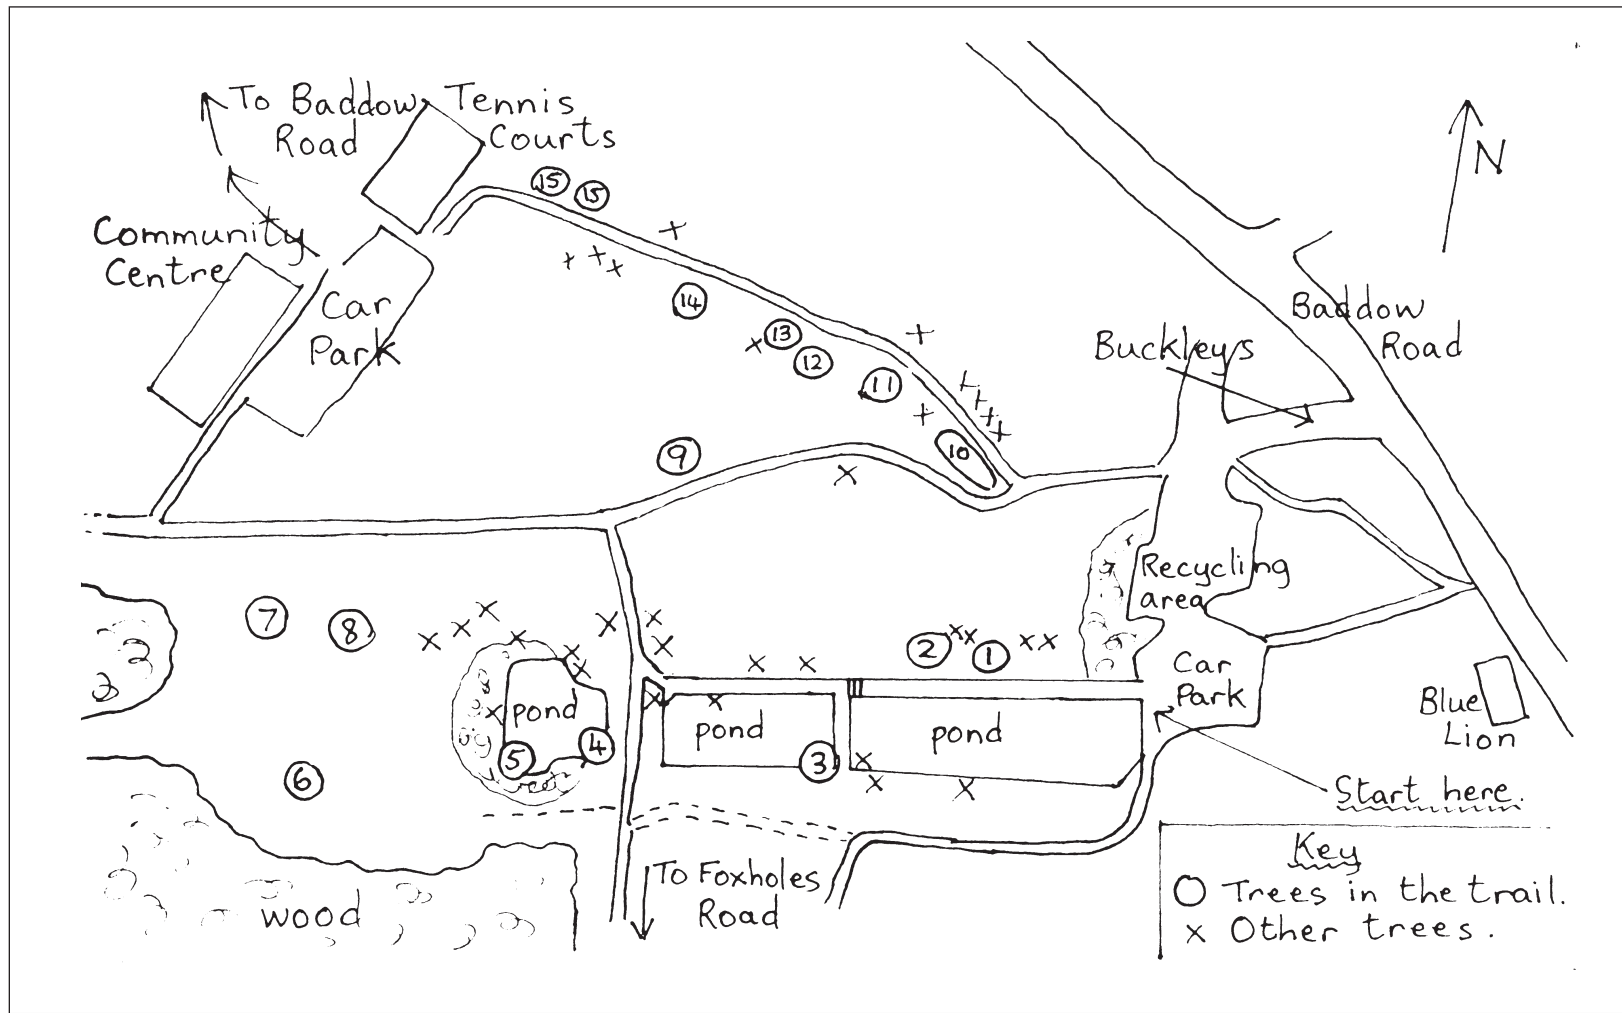 To Baddow
Road
Tennis
Courts
N
15
15
Community
Centre
Car
Park
14
13
12
11
10
9
Baddow
Road
Buckleys
Recycling
area
7
8
2
1
Car
Park
Blue
Lion
pond
5
4
pond
3
pond
6
Start here.
wood
To Foxholes
Road
Key
O Trees in the trail.
x Other trees.